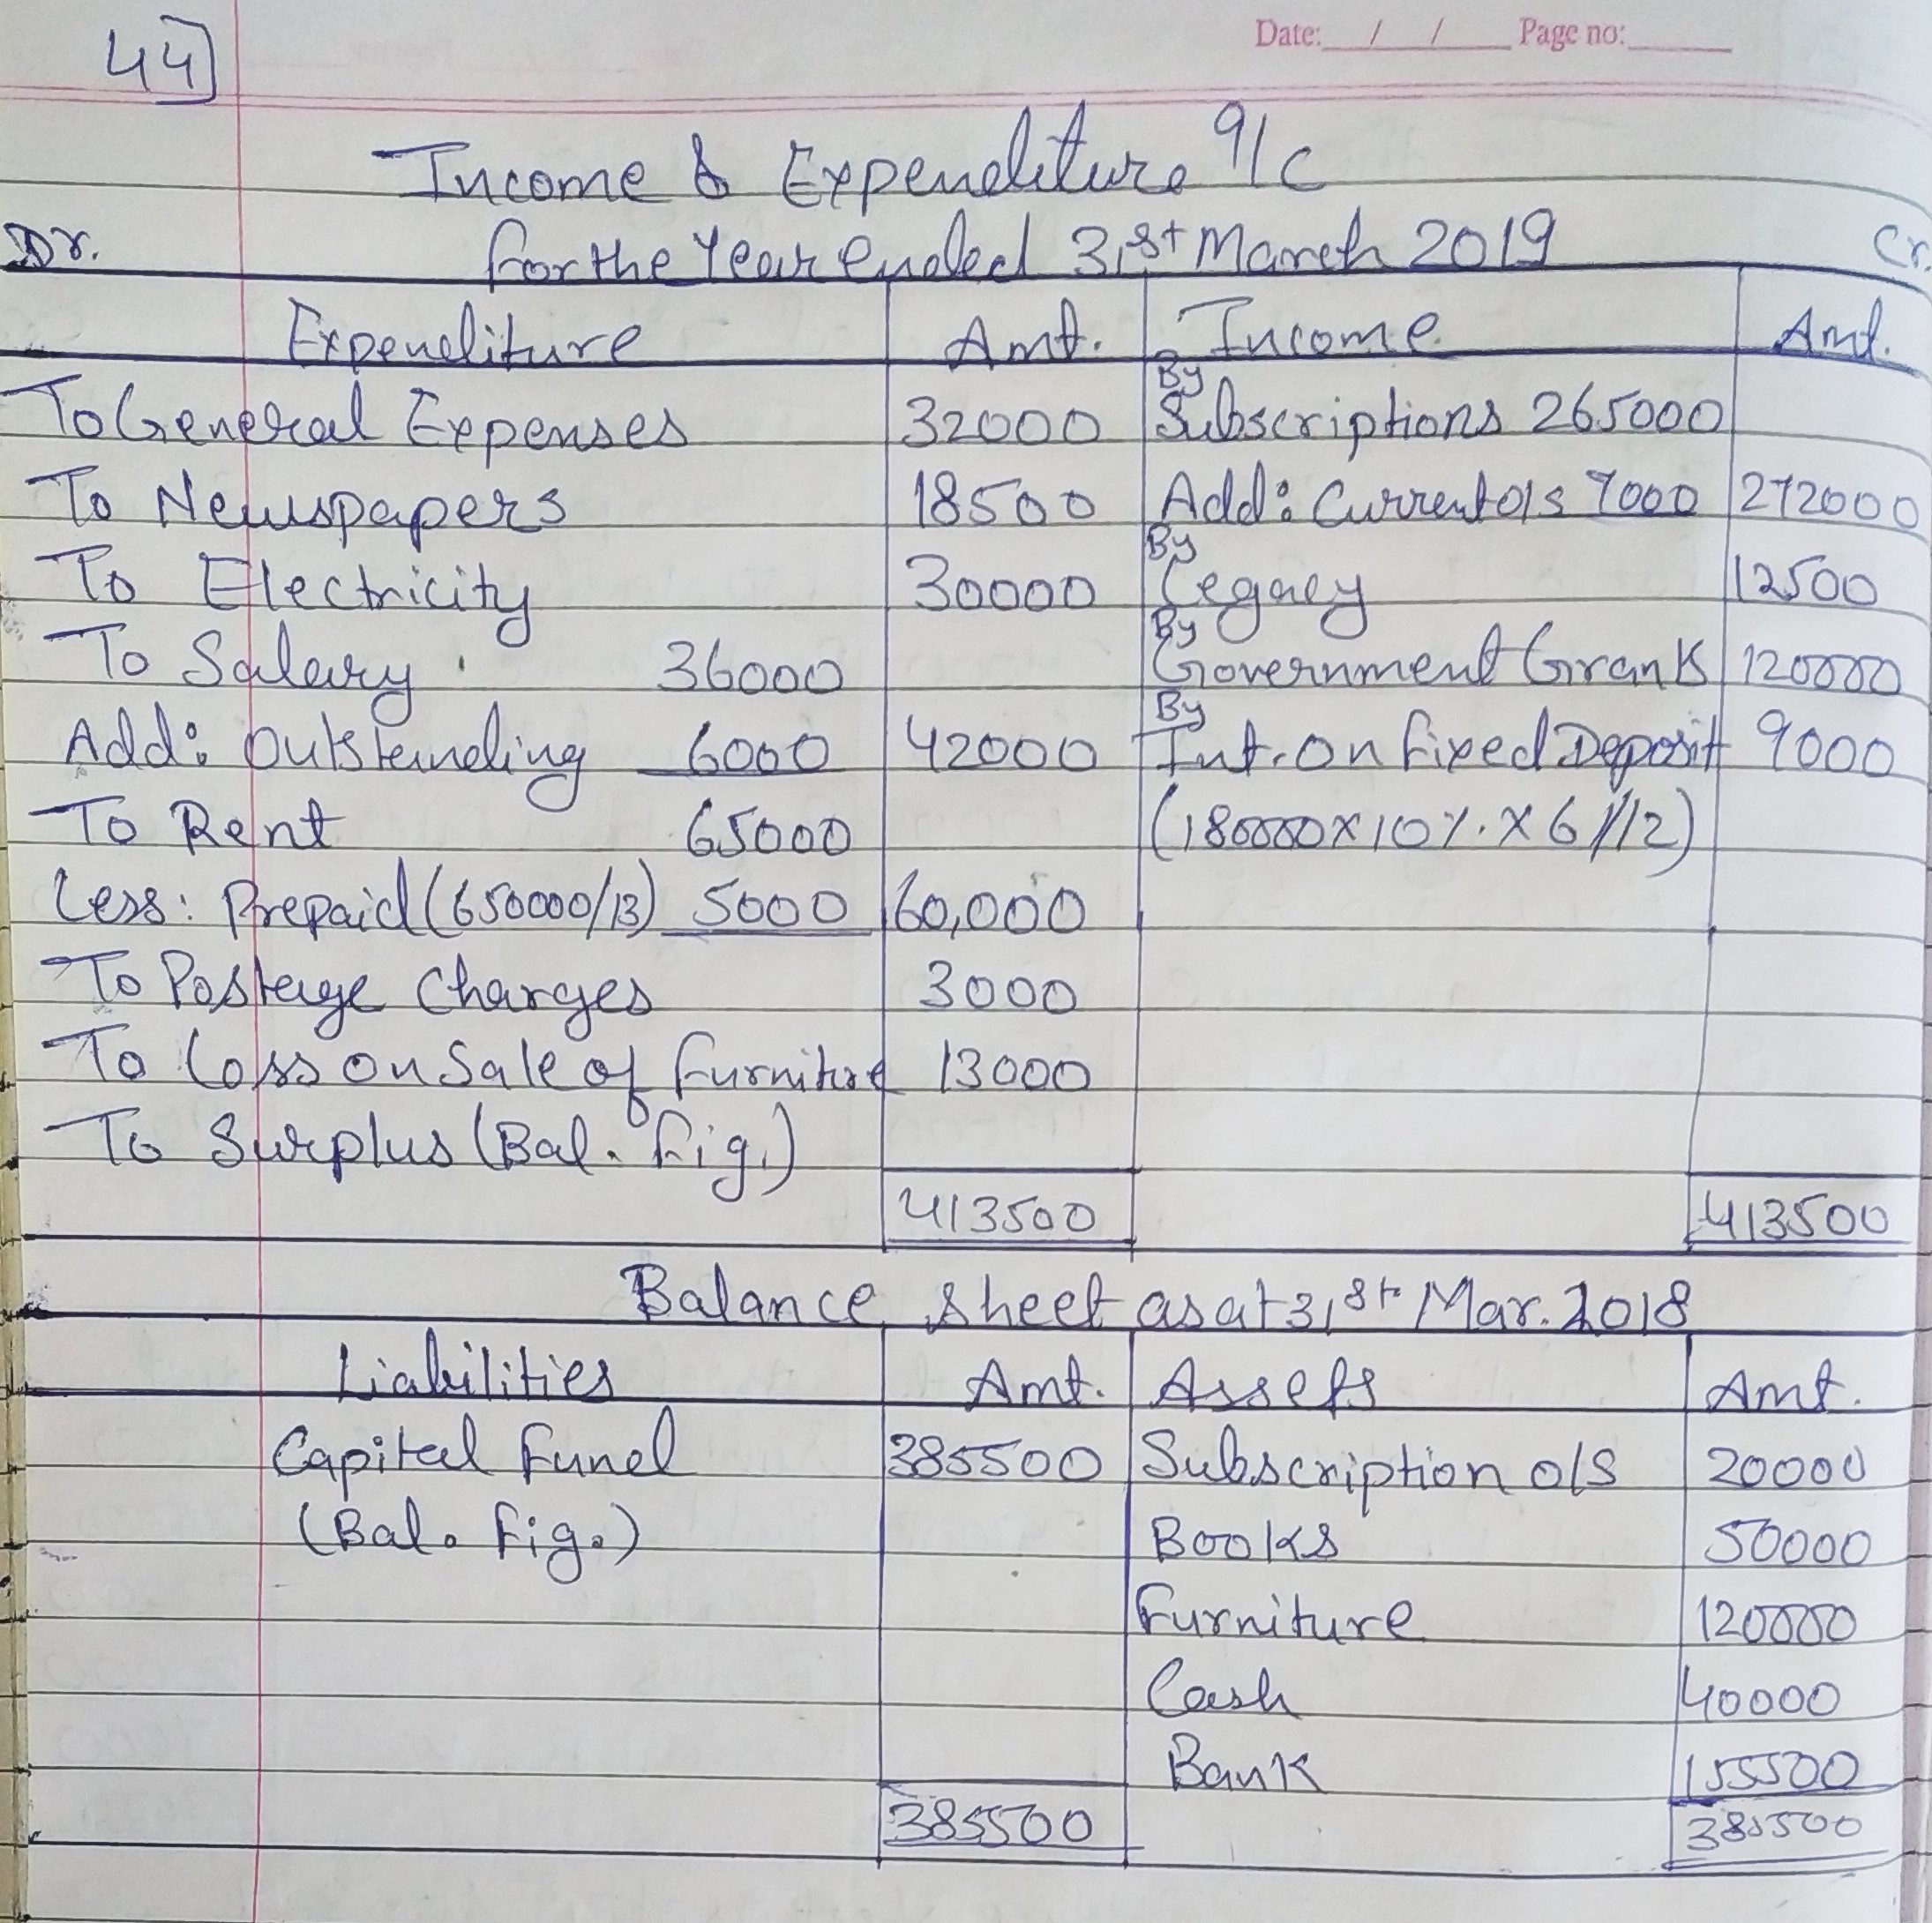 Date: / / Page no:
44]
Income & Expenditure a/c
for the Year ended 31st March 2019
Dr. Cr.
Expenditure Amt. Income Amt.
To General Expenses 32000 By Subscriptions 265000
To Newspapers 18500 Add: Current o/s 7000 272000
To Electricity 30000 By Legacy 12500
To Salary 36000 By Government Grants 120000
Add: Outstanding 6000 42000 By Int. on fixed Deposit 9000
To Rent 65000 (180000x10%.x6/12)
Less: Prepaid (650000/13) 5000 60,000
To Postage Charges 3000
To Loss on Sale of furniture 13000
To Surplus (Bal. fig.)
413500 413500
Balance Sheet as at 31st Mar. 2018
Liabilities Amt. Assets Amt.
Capital Fund 385500 Subscription o/s 20000
(Bal. fig.) Books 50000
Furniture 120000
Cash 40000
Bank 155500
385500 385500